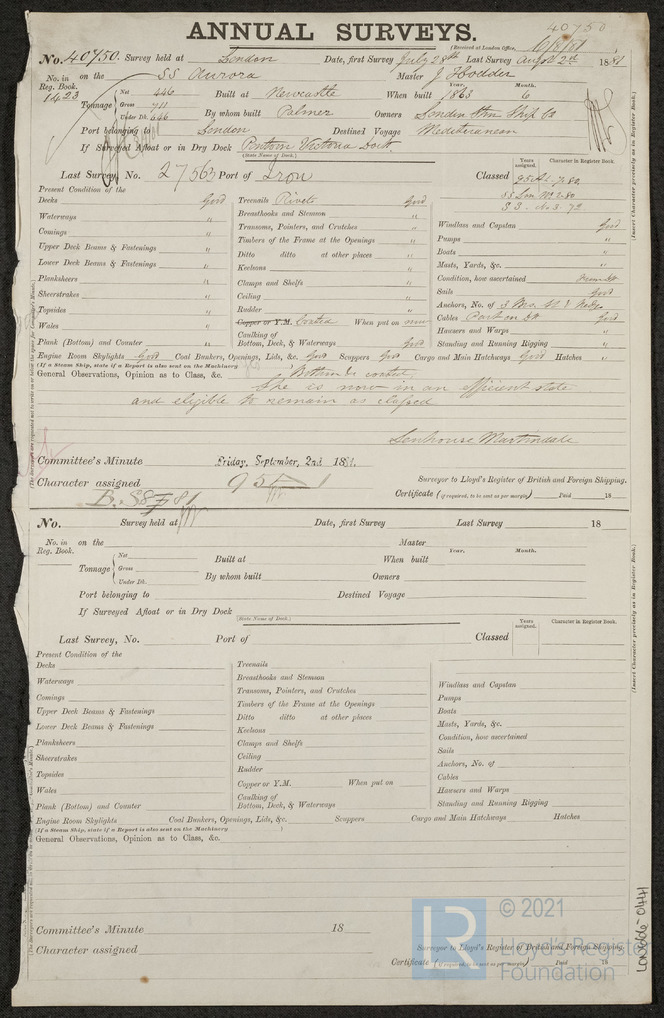 40750
ANNUAL SURVEYS.
(Received at London Office, 6/8/81
No. 40750. Survey held at London Date, first Survey July 28th Last Survey August 2d 1881
No. in Reg. Book. 1423 on the SS Aurora Master J Hodder
Tonnage Net 446 Gross 711 Under Dk. 646 Built at Newcastle When built Year. 1863 Month. 6
By whom built Palmer Owners London Stm Ship Co
Port belonging to London Destined Voyage Mediterranean
If Surveyed Afloat or in Dry Dock Victoria Dock
(State Name of Dock.)
Last Survey, No. 27563 Port of Iron Classed
Years assigned. Character in Register Book.
SS Lon No 2-80
S S. No 3. 72
(Insert Character precisely as in Register Book.)
Present Condition of the
Decks Good
Waterways "
Comings "
Upper Deck Beams & Fastenings "
Lower Deck Beams & Fastenings "
Planksheers "
Sheerstrakes "
Topsides "
Wales "
Plank (Bottom) and Counter "
Treenails Rivets Good
Breasthooks and Stemson "
Transoms, Pointers, and Crutches "
Timbers of the Frame at the Openings "
Ditto ditto at other places "
Keelsons "
Clamps and Shelfs "
Ceiling "
Rudder "
Copper or Y.M. Coated When put on now
Caulking of
Bottom, Deck, & Waterways Good
Windlass and Capstan Good
Pumps "
Boats "
Masts, Yards, &c. "
Condition, how ascertained
Sails Good
Anchors, No. of
Cables Good
Hawsers and Warps "
Standing and Running Rigging "
Engine Room Skylights Good Coal Bunkers, Openings, Lids, &c. Good Scuppers Good Cargo and Main Hatchways Good Hatches "
(If a Steam Ship, state if a Report is also sent on the Machinery )
General Observations, Opinion as to Class, &c. Bottom coated
She is now in an efficient state
and eligible to remain as classed
Senhouse Martindale
Committee's Minute Friday, September, 2nd 1881.
Character assigned 95A1
Surveyor to Lloyd's Register of British and Foreign Shipping.
Certificate (if required, to be sent as per margin) Paid 18
No. Survey held at Date, first Survey Last Survey 18
No. in Reg. Book. on the Master
Tonnage Net Gross Under Dk. Built at When built Year. Month.
By whom built Owners
Port belonging to Destined Voyage
If Surveyed Afloat or in Dry Dock
(State Name of Dock.)
Last Survey, No. Port of Classed
Years assigned. Character in Register Book.
(Insert Character precisely as in Register Book.)
Present Condition of the
Decks
Waterways
Comings
Upper Deck Beams & Fastenings
Lower Deck Beams & Fastenings
Planksheers
Sheerstrakes
Topsides
Wales
Plank (Bottom) and Counter
Treenails
Breasthooks and Stemson
Transoms, Pointers, and Crutches
Timbers of the Frame at the Openings
Ditto ditto at other places
Keelsons
Clamps and Shelfs
Ceiling
Rudder
Copper or Y.M. When put on
Caulking of
Bottom, Deck, & Waterways
Windlass and Capstan
Pumps
Boats
Masts, Yards, &c.
Condition, how ascertained
Sails
Anchors, No. of
Cables
Hawsers and Warps
Standing and Running Rigging
Engine Room Skylights Coal Bunkers, Openings, Lids, &c. Scuppers Cargo and Main Hatchways Hatches
(If a Steam Ship, state if a Report is also sent on the Machinery )
General Observations, Opinion as to Class, &c.
Committee's Minute 18
Character assigned
Surveyor to Lloyd's Register of British and Foreign Shipping.
Certificate (if required, to be sent as per margin) Paid 18
LR © 2021
Lloyd's Register
Foundation